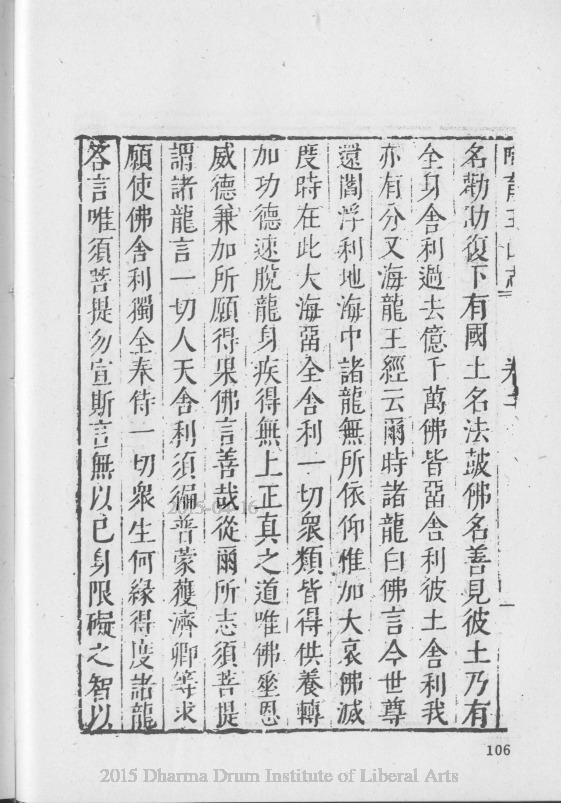 阿育王山志 卷二
名勸功復下有國土名法鼓佛名善見彼土乃有
全身舍利過去億千萬佛皆畱舍利彼土舍利我
亦有分又海龍王經云爾時諸龍白佛言今世尊
還閻浮利地海中諸龍無所依仰惟加大哀佛滅
度時在此大海畱全舍利一切衆類皆得供養轉
加功德速脫龍身疾得無上正真之道唯佛垂恩
威德兼加所願得果佛言善哉從爾所志須菩提
謂諸龍言一切人天舍利須徧普蒙獲濟卿等求
願使佛舍利獨全奉侍一切衆生何緣得度諸龍
答言唯須菩提勿宣斯言無以己身限礙之智以
106
2015 Dharma Drum Institute of Liberal Arts